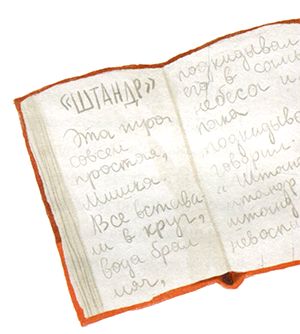 «ШТАНДР»
Эта игра
совсем
простая,
Мишка.
Все встава-
ли в круг,
вода брал
мяч,
подкидывал
его в самые
небеса и
пока
подкидывал
говорил:
"Штан
штандр
штандр